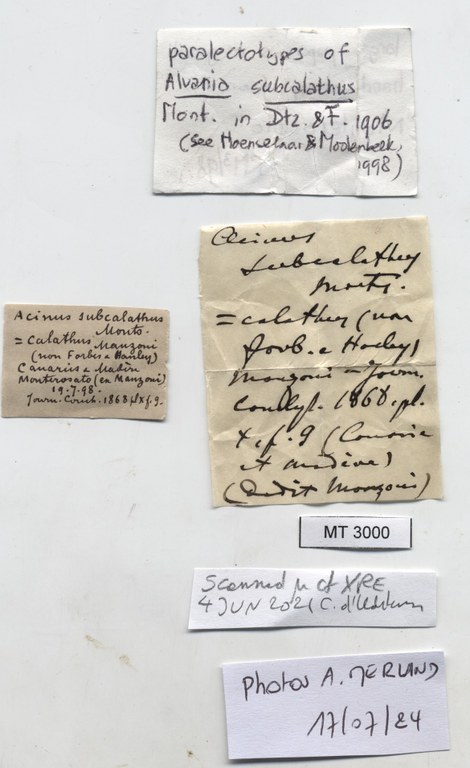 paralectotypes of
Alvania subcalathus
Mont. in Dtz. & F. 1906
(see Hoenselaar & Moolenbeek,
1998)
Acinus
subcalathus
Monts.
= calathus (non
forb. e Hanley)
Manzoni - Journ.
Conchyl. 1868. pl.
X, f. 9 (Canarie
et madira)
(dedit Manzoni)
Acinus subcalathus
Monts.
= calathus Manzoni
(non Forbes e Hanley)
Canarie e Madira
Monterosato (ex Manzoni)
19.7.98.
Journ. Conch. 1868 pl X f. 9.
MT 3000
Scanned μ ct XRE
4 JUN 2021 C. d'Udekem
Photos A. MERLAND
17/07/24